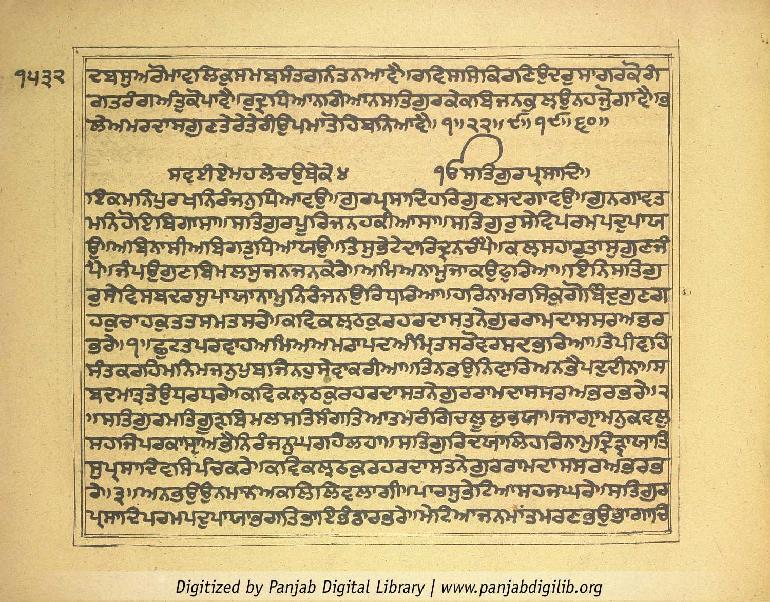 ੧੫੩੨
ਵਬਸੁਅਰੋਮਾਵਲਿਕੁਸਮਬਸੰਤਗਨੰਤਨਆਵੈ॥ਰਵਿਸਸਿਕਿਰਣਿਉਦਰੁਸਾਗਰਕੋਗੰ
ਗਤਰੰਗਅੰਤੁਕੋਪਾਵੈ॥ਰੁਦ੍ਰਧਿਆਨਗਿਆਨਸਤਿਗੁਰਕੇਕਬਿਜਨਭਲੵਉਨਹਜੋੁਗਾਵੈ॥ਭ
ਲੇਅਮਰਦਾਸਗੁਣਤੇਰੇਤੇਰੀਉਪਮਾਤੋਹਿਬਨਿਆਵੈ॥੧॥੨੨॥੯॥੧੯॥੬੦॥
ਸਵਈਏਮਹਲੇਚਉਥੇਕੇ੪ ੴਸਤਿਗੁਰਪ੍ਰਸਾਦਿ॥
ਇਕਮਨਿਪੁਰਖਨਿਰੰਜਨੁਧਿਆਵਉ॥ਗੁਰਪ੍ਰਸਾਦਿਹਰਿਗੁਣਸਦਗਾਵਉ॥ਗੁਨਗਾਵਤ
ਮਨਿਹੋਇਬਿਗਾਸਾ॥ਸਤਿਗੁਰਪੂਰਿਜਨਹਕੀਆਸਾ॥ਸਤਿਗੁਰੁਸੇਵਿਪਰਮਪਦੁਪਾਯ
ਉ॥ਅਬਿਨਾਸੀਅਬਿਗਤੁਧਿਆਯਉ॥ਤਿਸੁਭੇਟੇਦਾਰਿਦ੍ਰੁਨਚੰਪੈ॥ਕਲੵਸਹਾਰੁਤਾਸੁਗੁਣਜੰ
ਪੈ॥ਜੰਪਉਗੁਣਬਿਮਲਸੁਜਨਜਨਕੇਰੇ॥ਅਮਿਅਨਾਮੁਜਾਕਉਫੁਰਿਆ॥ਇਨਿਸਤਿਗੁ
ਰੁਸੇਵਿਸਬਦਰਸੁਪਾਯਾਨਾਮੁਨਿਰੰਜਨਉਰਿਧਰਿਆ॥ਹਰਿਨਾਮਰਸਿਕੁਗੋਬਿੰਦਗੁਣਗਾ
ਹਕੁਚਾਹਕੁਤਤਸਮਤਸਰੇ॥ਕਵਿਕਲੵਠਕੁਰਹਰਦਾਸਤਨੇਗੁਰਰਾਮਦਾਸਸਰਅਭਰ
ਭਰੇ॥੧॥ਛੁਟਤਪਰਵਾਹਅਮਿਅਅਮਰਾਪਦਅੰਮ੍ਰਿਤਸਰੋਵਰਸਦਭਰਿਆ॥ਤੇਪੀਵਹਿ
ਸੰਤਕਰਹਿਮਨਿਮਜਨੁਪੁਬਜਿਨਹੁਸੇਵਾਕਰੀਆ॥ਤਿਨਭਉਨਿਵਾਰਿਅਨਭੈਪਦੁਦੀਨਾ॥ਸ
ਬਦਮਾਤ੍ਰਤੇਉਧਰਧਰੇ॥ਕਵਿਕਲੵਠਕੁਰਹਰਦਾਸਤਨੇਗੁਰਰਾਮਦਾਸਸਰਅਭਰਭਰੇ॥੨
॥ਸਤਿਗੁਰਮਤਿਗੂੜੑਬਿਮਲਸਤਿਸੰਗਤਿਆਤਮੁਰੰਗਿਚਲੂਲੁਭਯਾ॥ਜਾਗੵਾਮਨੁਕਵਲੁ
ਸਹਜਿਪਰਕਾਸੵਾਅਭੈਨਿਰੰਜਨੁਘਰਹਿਲਹਾ॥ਸਤਿਗੁਰਿਦਯਾਲਿਹਰਿਨਾਮੁਦ੍ਰਿੜੑਾਯਾਤਿ
ਸੁਪ੍ਰਸਾਦਿਵਸਿਪੰਚਕਰੇ॥ਕਵਿਕਲੵਠਕੁਰਹਰਦਾਸਤਨੇਗੁਰਰਾਮਦਾਸਸਰਅਭਰਭ
ਰੇ॥੩॥ਅਨਭਉਉਨਮਾਨਿਅਕਲਿਲਿਵਲਾਗੀ॥ਪਾਰਸੁਭੇਟਿਆਸਹਜਘਰੇ॥ਸਤਿਗੁਰ
ਪ੍ਰਸਾਦਿਪਰਮਪਦੁਪਾਯਾਭਗਤਿਭਾਇਭੰਡਾਰਭਰੇ॥ਮੇਟਿਆਜਨਮਾਂਤੁਮਰਣਭਉਭਾਗਾਚਿ
Digitized by Panjab Digital Library | www.panjabdigilib.org